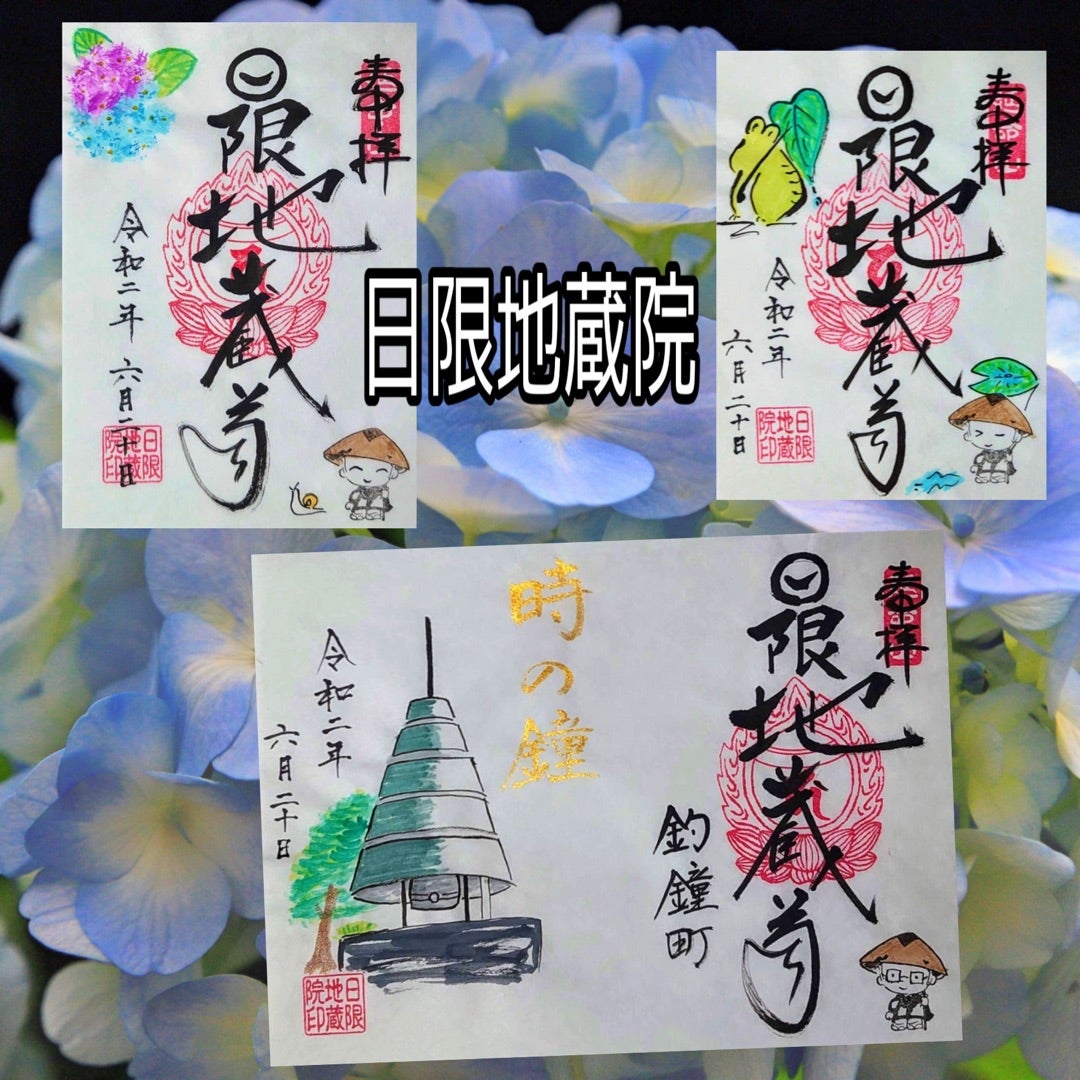 奉拝
日限地蔵尊
令和二年 六月二十日
日限地蔵院印
奉拝
日限地蔵尊
令和二年
六月二十日
日限地蔵院印
日限地蔵院
奉拝
日限地蔵尊
釣鐘町
時の鐘
令和二年
六月二十日
日限地蔵院印